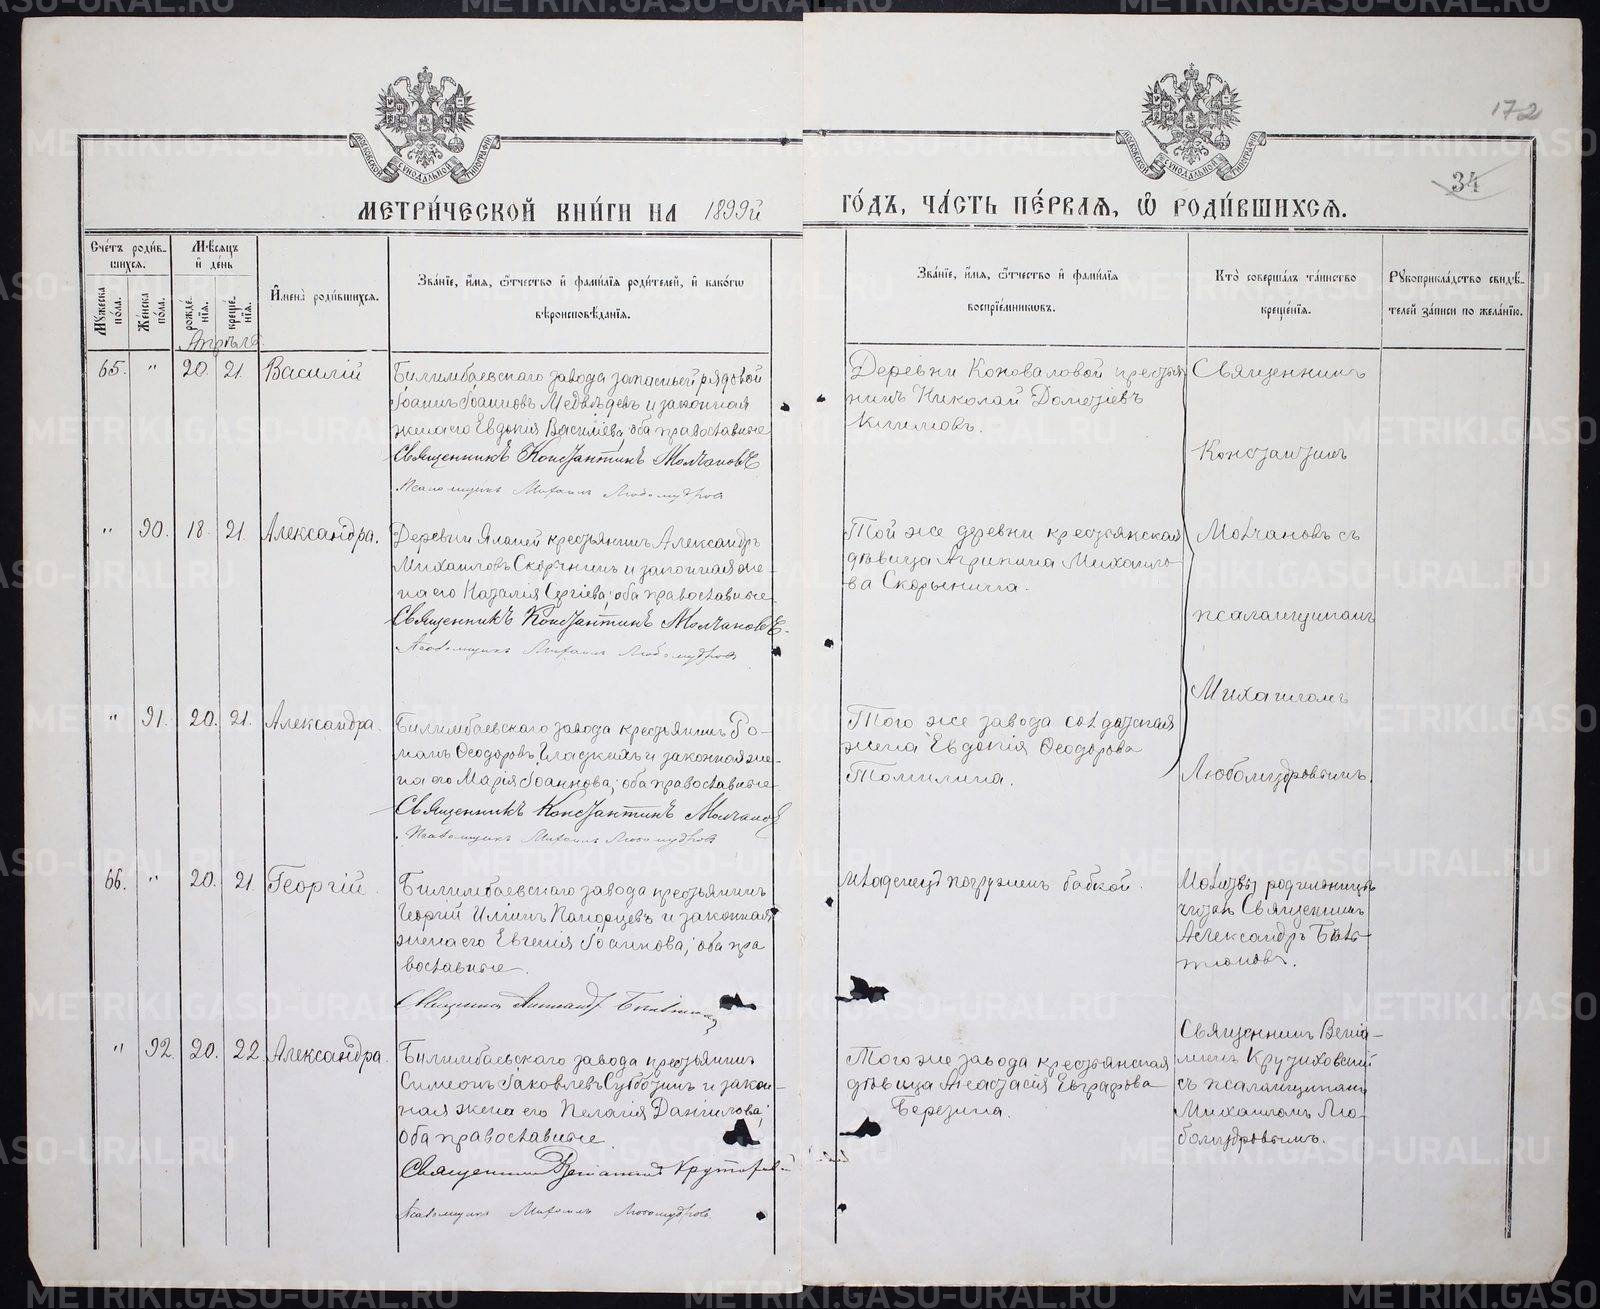 172
34
МЕТРИ́ЧЕСКОЙ КНИ́ГИ НА 1899й ГО́ДЪ, ЧА́СТЬ ПЕ́РВАЯ, Ѡ РОДИ́ВШИХСЯ.
Сче́тъ роди́в-
шихся.
Мꙋжеска по́ла.
Же́нска по́ла.
Мѣ́сяцъ и де́нь
рожде́нія.
креще́нія.
Имена̀ роди́вшихся.
Зва́ніе, и́мя, ѻ҆́тчество и фами́лія роди́телей, и како́гѡ
вѣроисповѣ́данія.
Зва́ніе, и́мя, ѻ҆́тчество и фами́лія
воспріе́мниковъ.
Кто̀ соверша́лъ та́инство
креще́нія.
Рꙋкоприкла́дство свидѣ́-
телей за́писи по жела́нію.
Апрѣль
65. " 20. 21. Василій
Билимбаевскаго завода запасный рядовой
Іоаннъ Іоанновъ Медвѣдевъ и законная
жена его Евдокія Василіева, оба православные
Священникъ Константинъ Молчановъ
Псаломщикъ Михаилъ Любомудровъ
Деревни Коноваловой крестья
нинъ Николай Дометіевъ
Священникъ
Константинъ
" 90. 18. 21. Александра.
Деревни крестьянинъ Александръ
Михаиловъ Скорынинъ и законная же-
на его Наталія Сергіева; оба православные
Священникъ Константинъ Молчановъ.
Псаломщикъ Михаилъ Любомудровъ
Той же деревни крестьянская
дѣвица Агрипина Михаило-
ва Скорынина.
Молчановъ съ
псаломщикомъ
Михаиломъ
" 91. 20. 21. Александра.
Билимбаевскаго завода крестьянинъ Ро-
манъ Ѳеодоровъ Гладкихъ и законная же-
на его Марія Іоаннова; оба православные
Священникъ Константинъ Молчановъ
Псаломщикъ Михаилъ Любомудровъ
Того же завода солдатская
жена Евдокія Ѳеодорова
Томилина.
Любомудровымъ.
66. " 20. 21. Георгій
Билимбаевскаго завода крестьянинъ
Георгій Иліинъ и законная
жена его Евгенія Іоаннова; оба пра
вославные.
Младенецъ погруженъ бабкой.
Молитвы родильницѣ
читалъ Священникъ
Александръ
" 92. 20. 22. Александра.
Билимбаевскаго завода крестьянинъ
Симеонъ Іаковлевъ Субботинъ и закон-
ная жена его Пелагія Даніилова;
оба православные.
Священникъ Веніаминъ
Псаломщикъ Михаилъ Любомудровъ
Того же завода крестьянская
дѣвица Анастасія Евграфова
Березина.
Священникъ Веніа-
минъ
съ псаломщикомъ
Михаиломъ Лю-
бомудровымъ.
METRIKI.GASO-URAL.RU